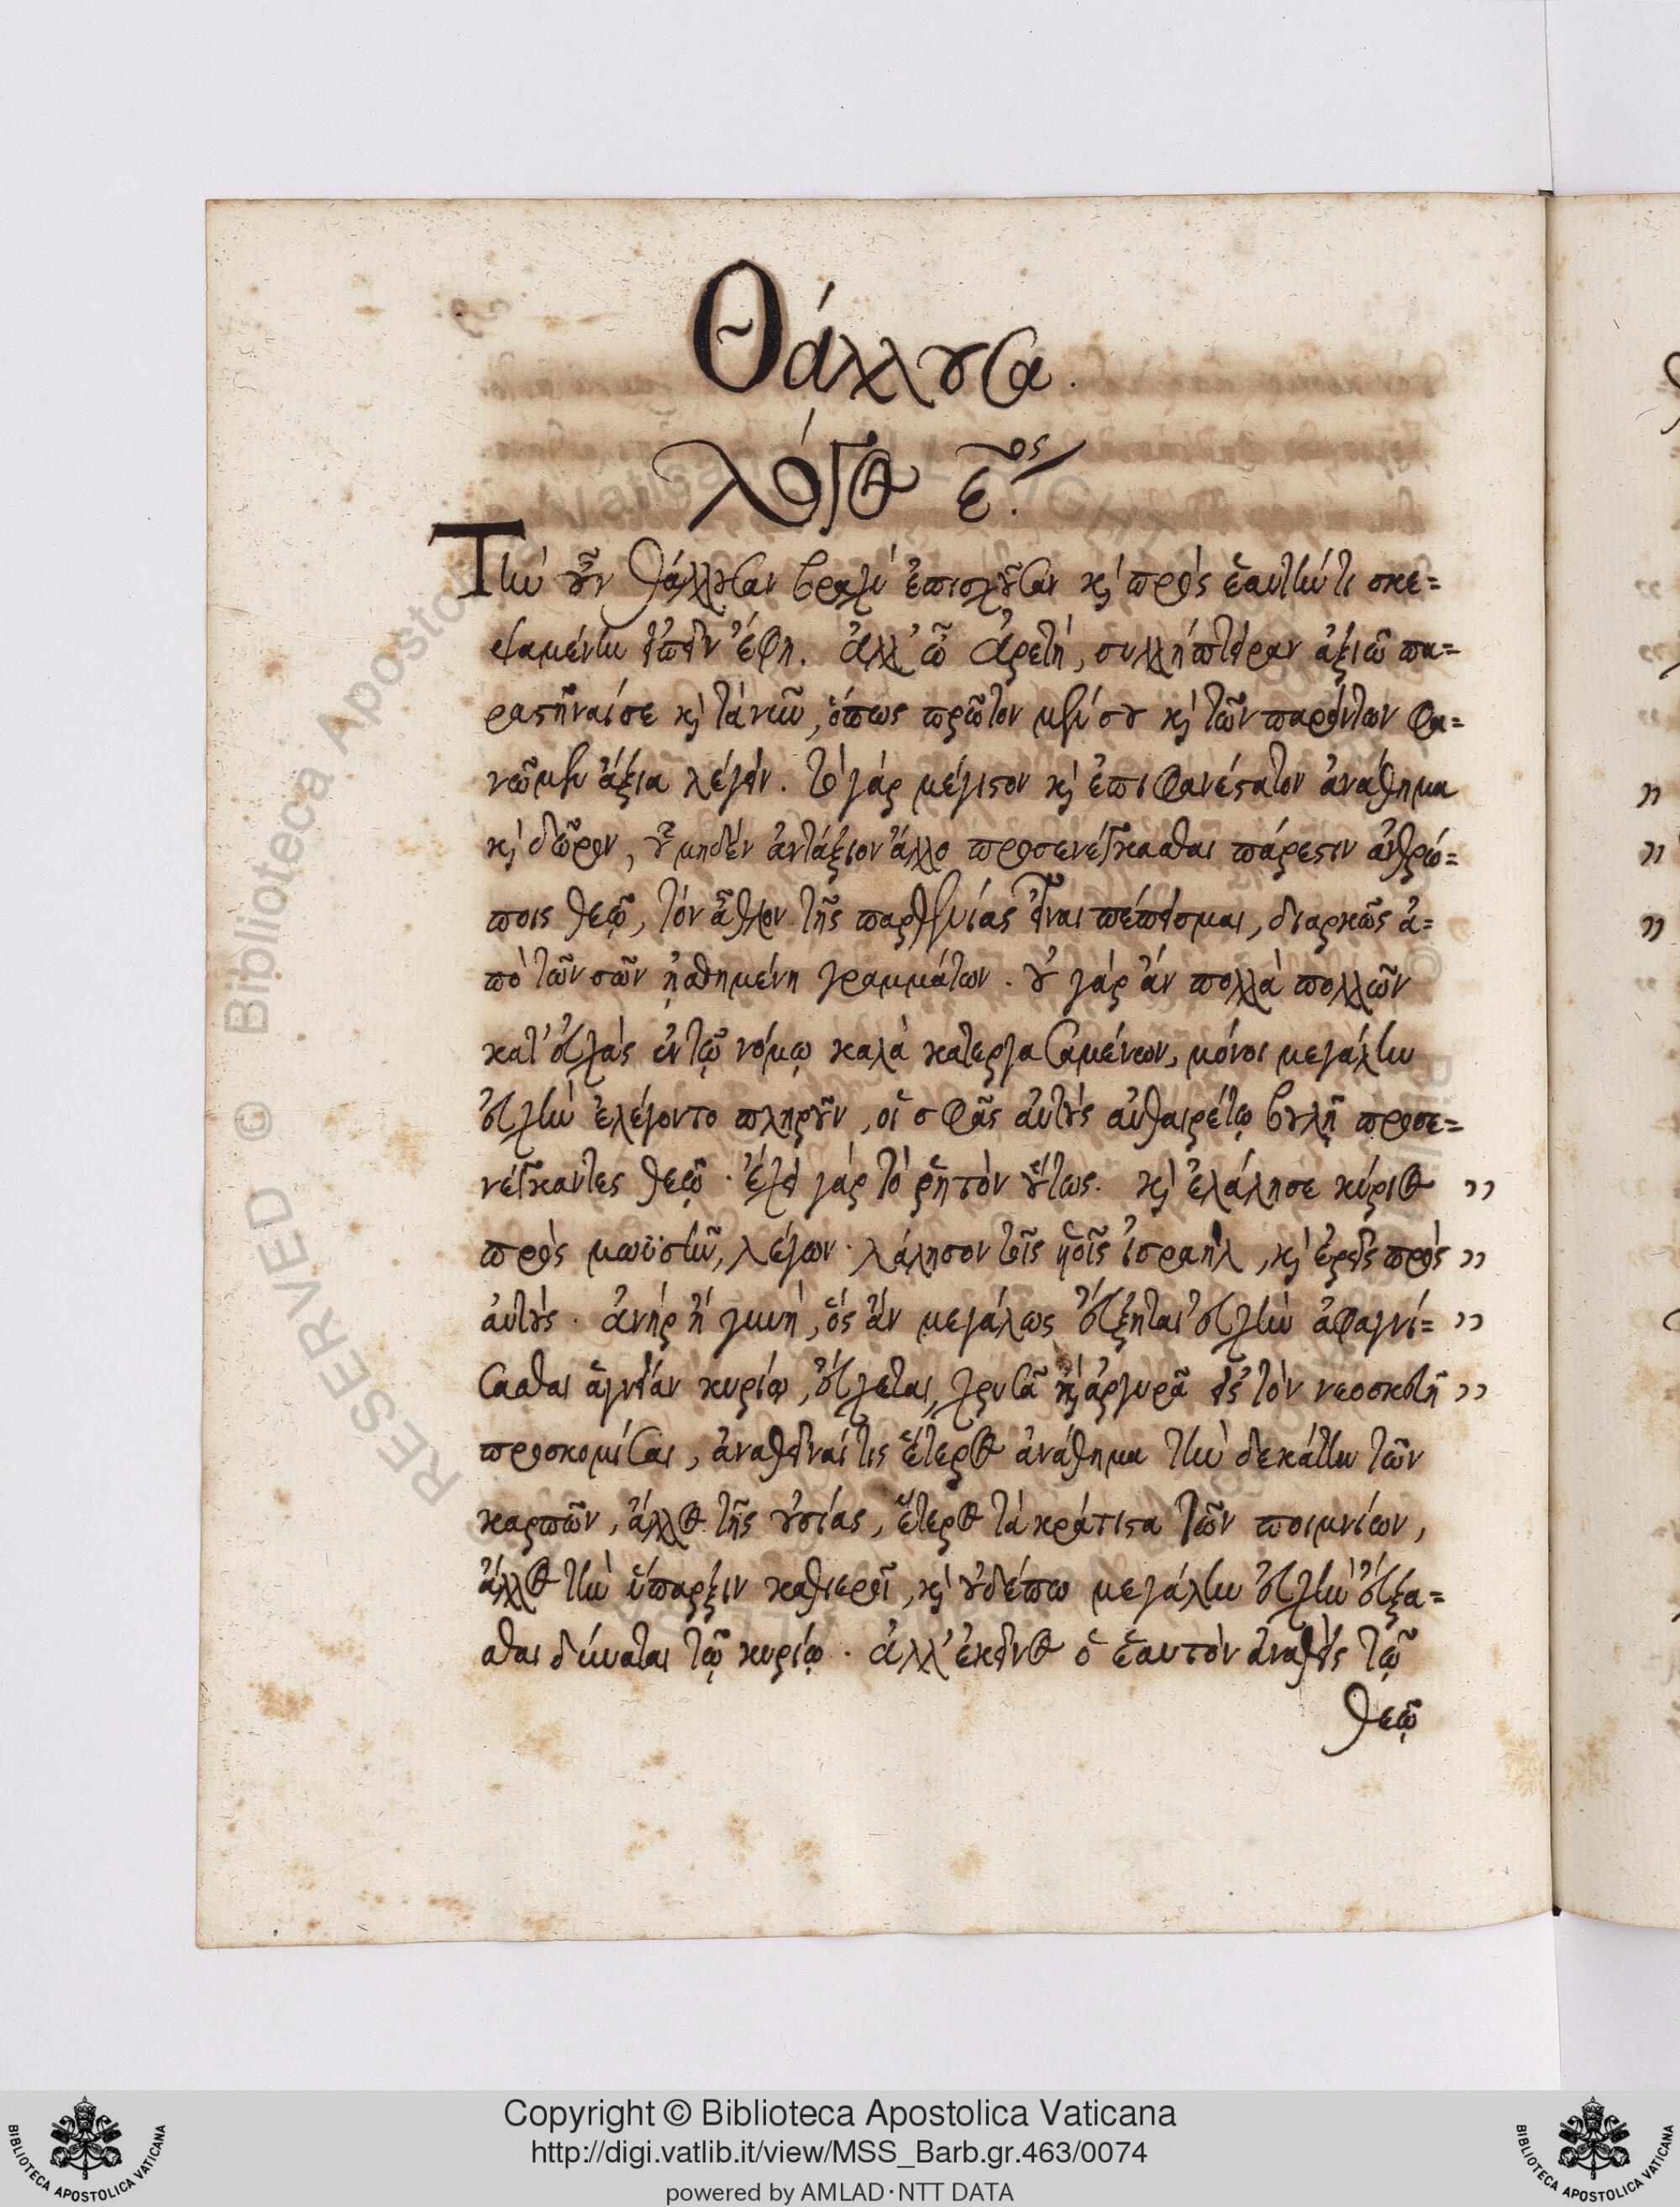 Θάλλουσα.
λόγος ε̃ος.
Τὴν οὖν Θάλλουσαν βραχὺ ἐπισχοῦσαν καὶ πρὸς ἑαυτήν τι σκε=
ψαμένην εἰπεῖν ἔφη. ἀλλ' ὦ Ἀρετή, συλλήπτειραν ἀξιῶ πα=
ραστῆναί σε καὶ τανῦν, ὅπως πρῶτον μὲν σοῦ καὶ τῶν παρόντων φα=
νῶμεν ἄξια λέγειν. τὸ γάρ μέγιστον καὶ ἐπιφανέστατον ἀνάθημα
καὶ δῶρον, οὗ μηδὲν ἀντάξιον ἄλλο προσενέγκασθαι πάρεστιν ἀνθρώ=
ποις θεῷ, τὸν ἆθλον τῆς παρθενίας εἶναι πέπεισμαι, διαρκῶς ἀ=
πὸ τῶν σῶν ᾐσθημένη γραμμάτων. οὐ γάρ ἂν πολλὰ πολλῶν
κατ' εὐχὰς ἐν τῷ νόμῳ καλὰ κατεργασαμένων, μόνοι μεγάλην
εὐχὴν ἐλέγοντο πληροῦν, οἱ σφᾶς αὐτοὺς αὐθαιρέτῳ βουλῇ προσε=
νέγκαντες θεῷ. ἔχει γάρ τὸ ῥητὸν οὕτως. καὶ ἐλάλησε κύριος ,,
πρὸς μωϋσῆν, λέγων. λάλησον τοῖς υἱοῖς ἰσραὴλ, καὶ ἐρεῖς πρὸς ,,
αὐτούς. ἀνὴρ ἢ γυνὴ, ὃς ἂν μεγάλως εὔξηται εὐχὴν ἀφαγνί= ,,
σασθαι ἁγνείαν κυρίῳ, εὔχεται, χρυσᾶ καὶ ἀργυρᾶ εἰς τὸν νεὼ σκεύη ,,
προσκομίσαι, ἀναθεῖναί τις ἕτερος ἀνάθημα τὴν δεκάτην τῶν
καρπῶν, ἄλλος τῆς οὐσίας, ἕτερος τὰ κράτιστα τῶν ποιμνίων,
ἄλλος τὴν ὕπαρξιν καθιεροῖ, καὶ οὐδέπω μεγάλην εὐχὴν εὔξα=
σθαι δύναται τῷ κυρίῳ. ἀλλ' ἐκεῖνος ὁ ἑαυτὸν ἀναθεὶς τῷ
θεῷ
Copyright © Biblioteca Apostolica Vaticana
http://digi.vatlib.it/view/MSS_Barb.gr.463/0074
powered by AMLAD·NTT DATA